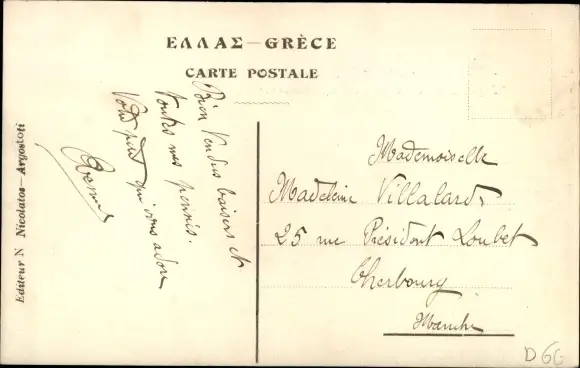 ΕΛΛΑΣ — GRÈCE
CARTE POSTALE
Bien tendres baisers et
toutes mes pensées.
Votre petit qui vous adore
Editeur N Nicolatos — Argostoli
Mademoiselle
Madeleine Villalard
25 rue Président Loubet
Cherbourg
Manche
D 6G